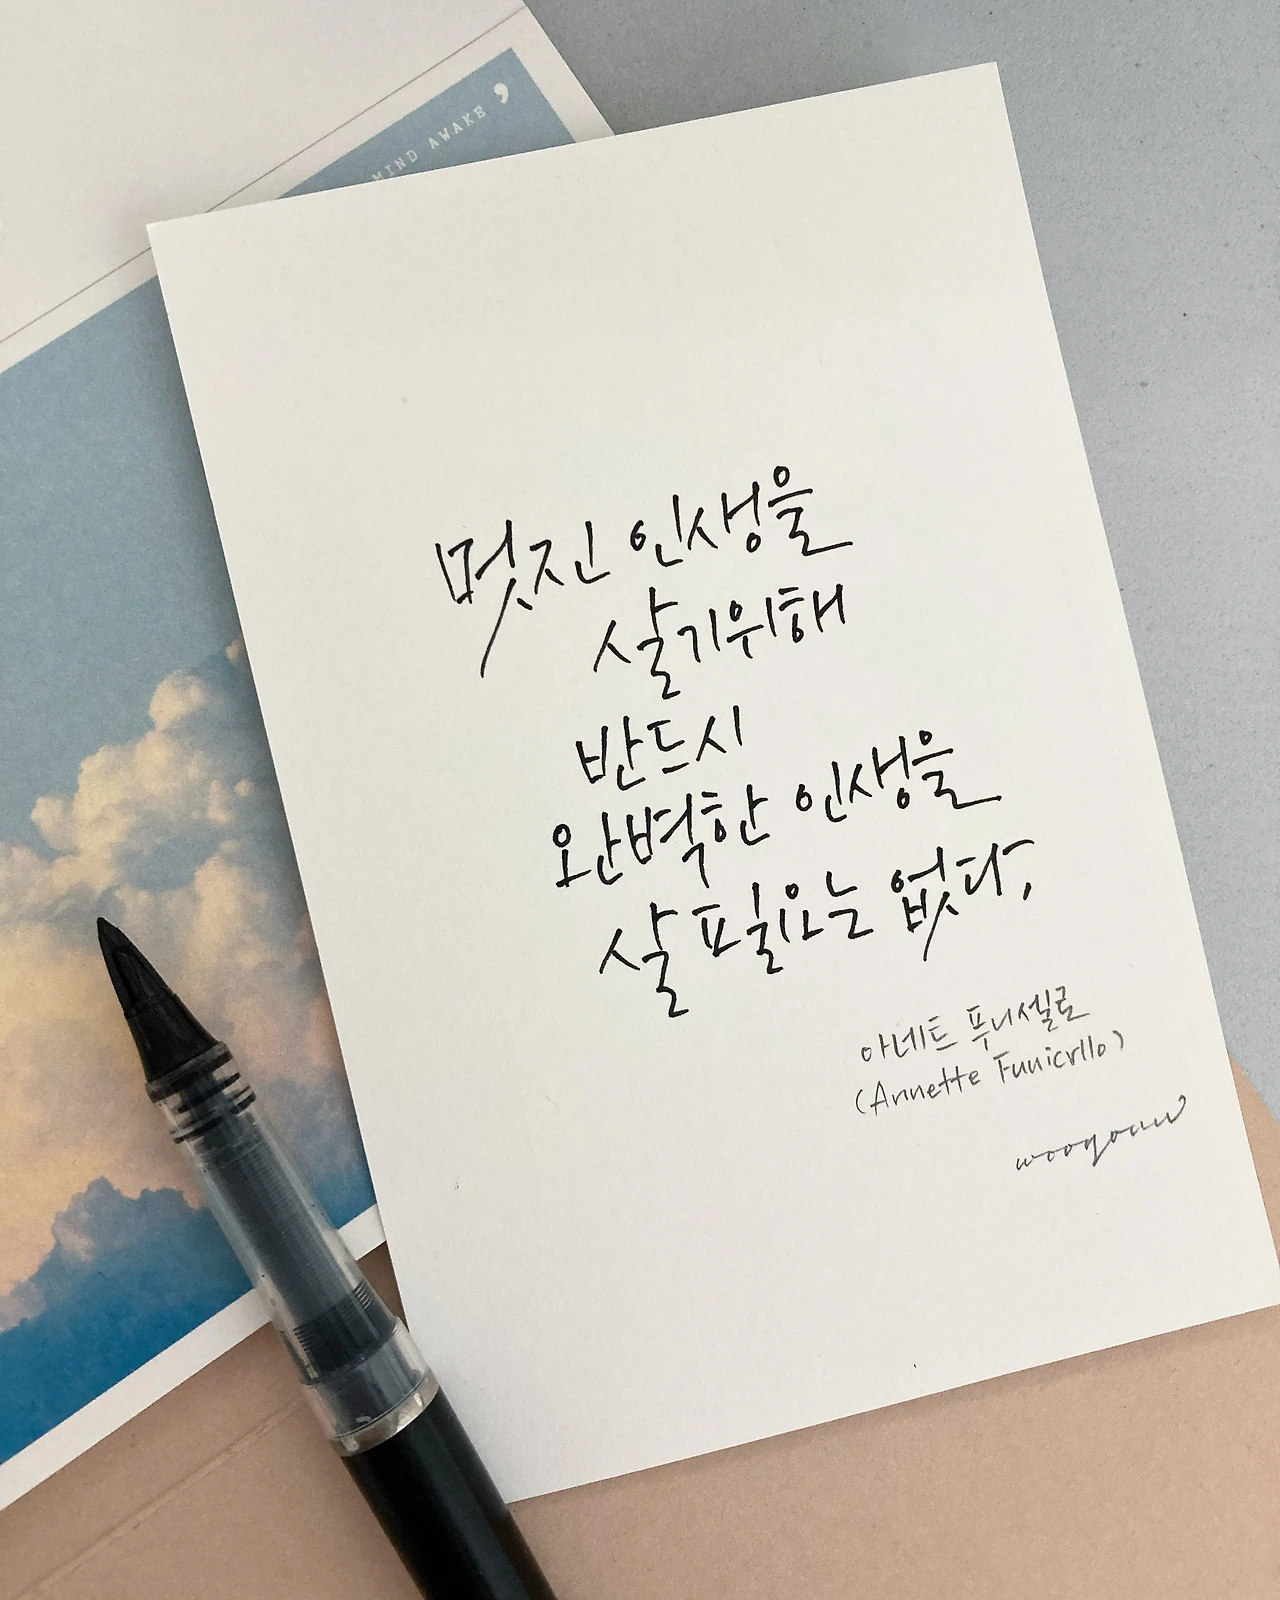 MIND AWAKE ,
멋진 인생을
살기위해
반드시
완벽한 인생을
살 필요는 없다,
아네트 푸니셀로
(Annette Funicrllo)